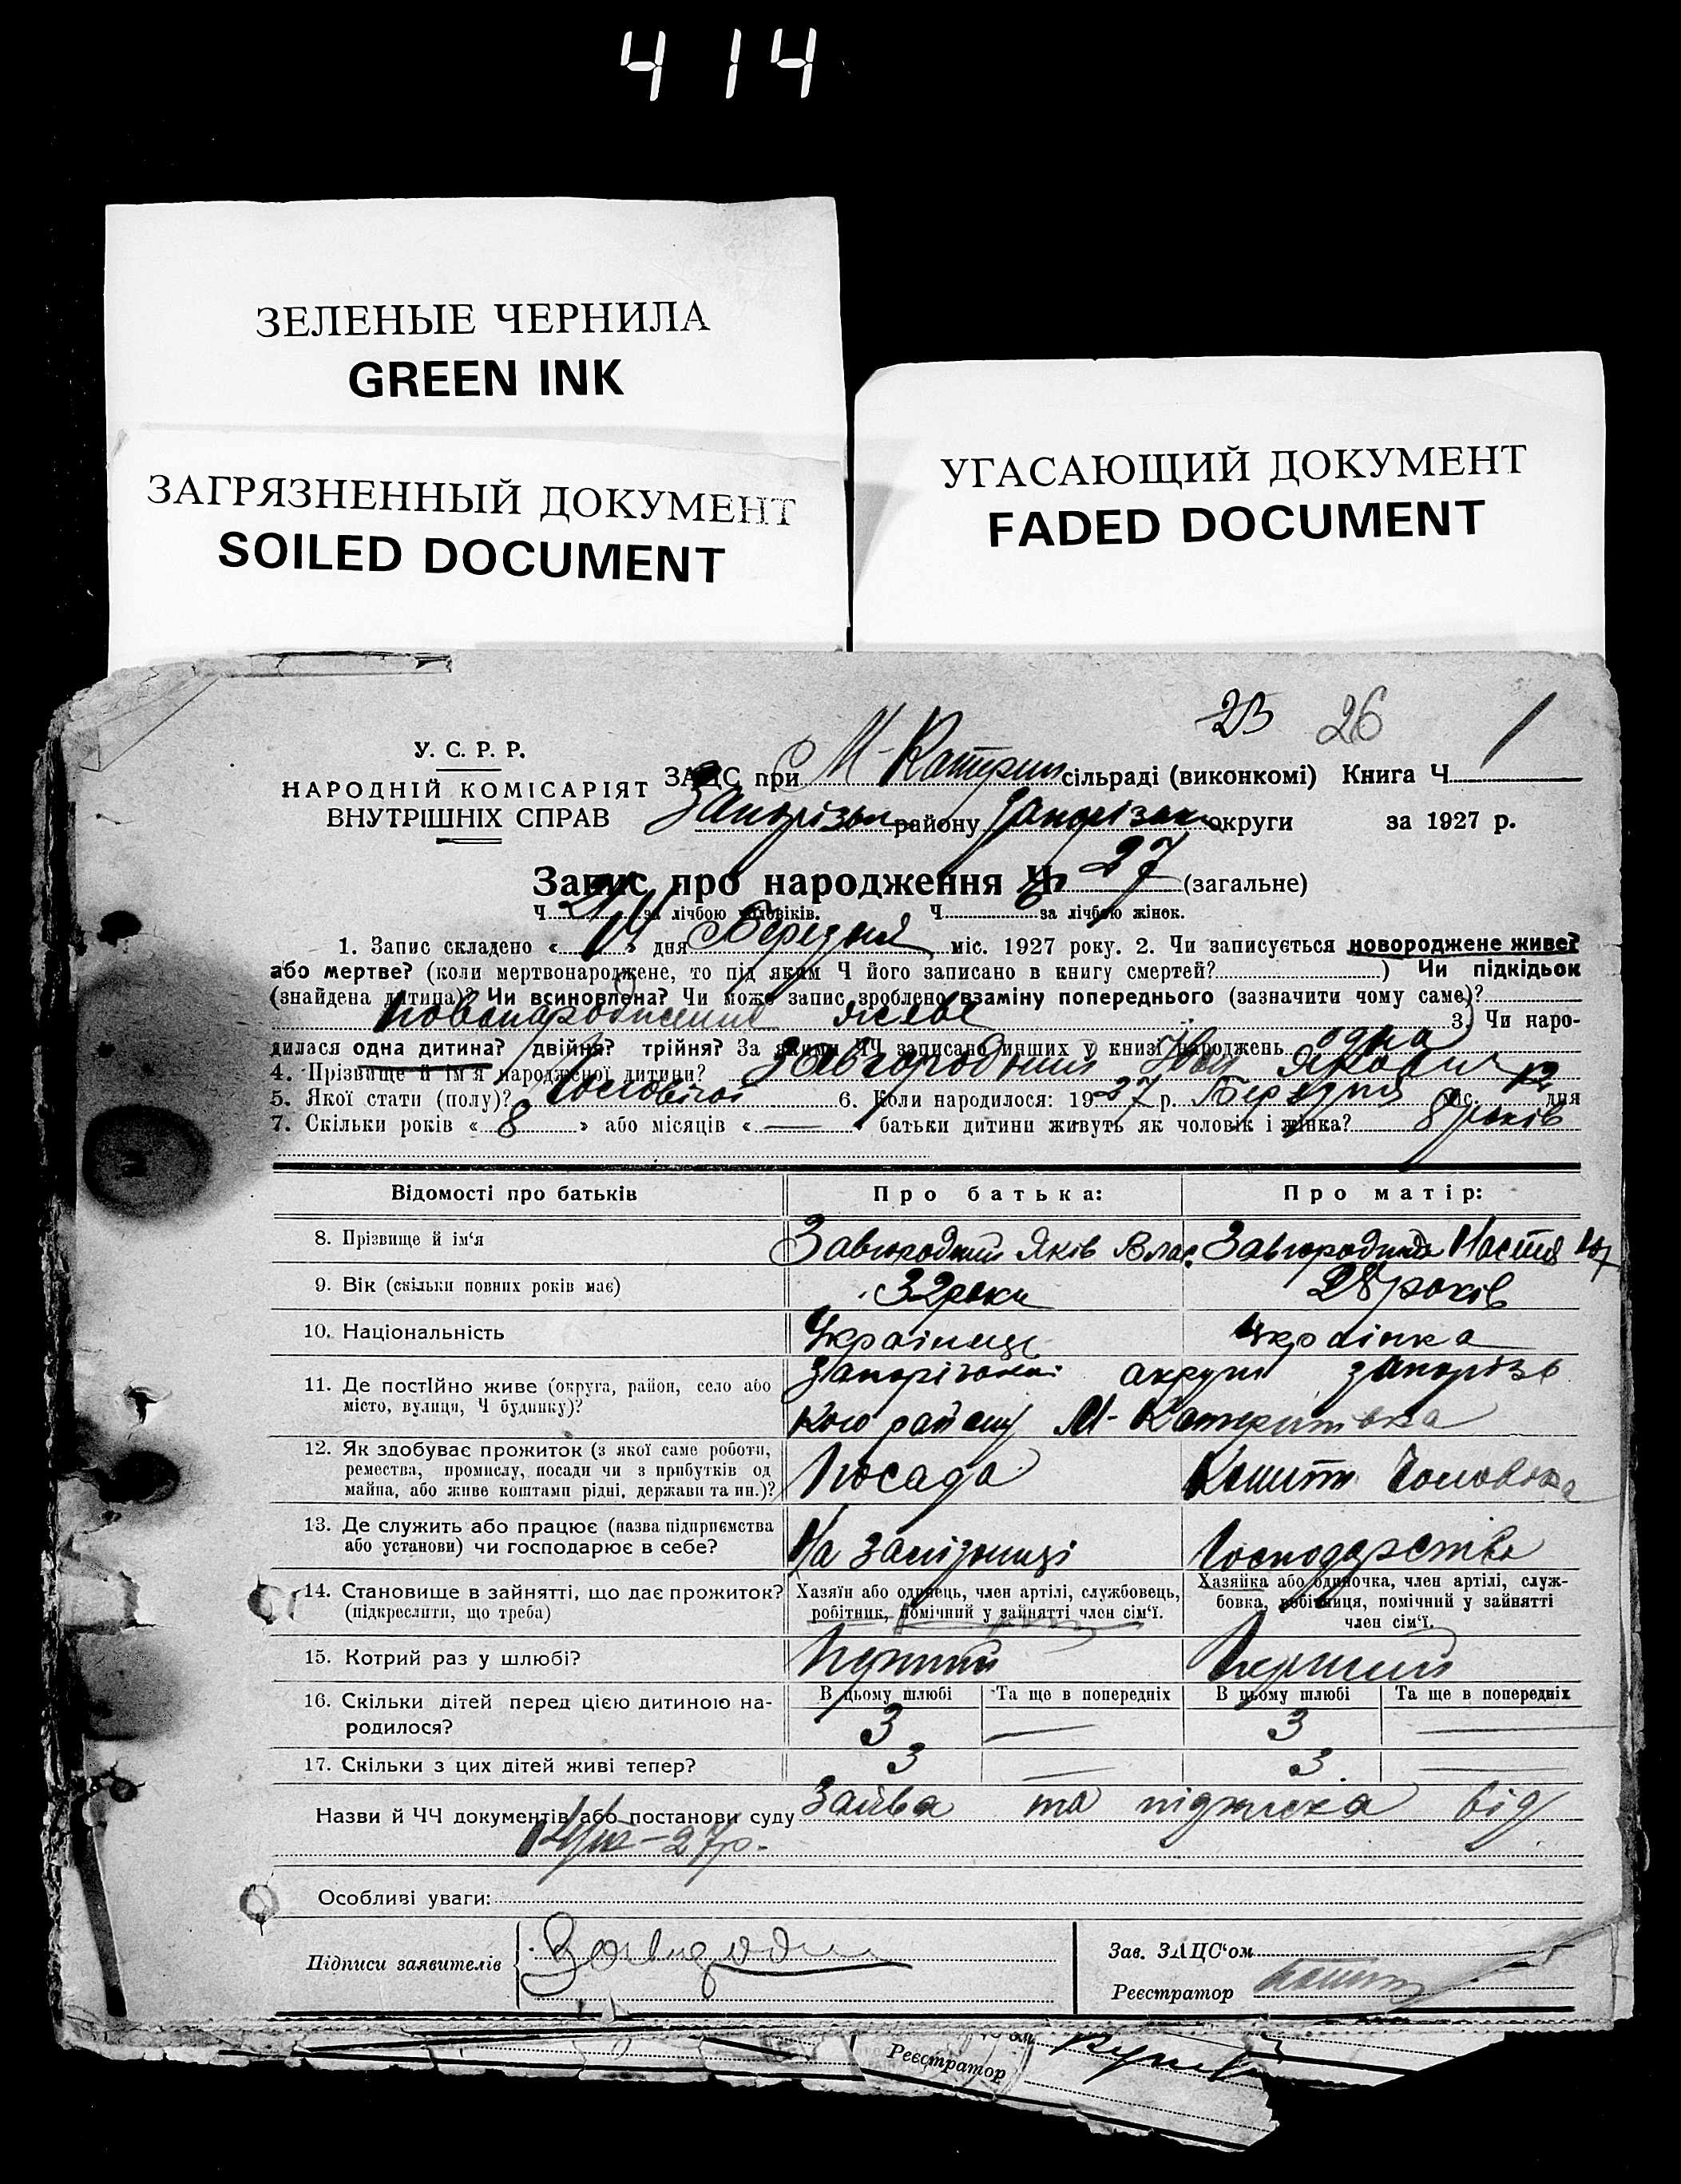 414
ЗЕЛЕНЫЕ ЧЕРНИЛА
GREEN INK
ЗАГРЯЗНЕННЫЙ ДОКУМЕНТ
SOILED DOCUMENT
УГАСАЮЩИЙ ДОКУМЕНТ
FADED DOCUMENT
23 26
У. С. Р. Р.
НАРОДНІЙ КОМІСАРІЯТ
ВНУТРІШНІХ СПРАВ
ЗАЦС при М-Катрин сільраді (виконкомі) Книга Ч. 1
Запорізьк району Запорізьк округи за 1927 р.
Запис про народження Ч. 27 (загальне)
Ч. за лічбою чоловіків. Ч. за лічбою жінок.
1. Запис складено «14» дня Березня міс. 1927 року. 2. Чи записується новороджене живе?
або мертве? (коли мертвонароджене, то під яким Ч його записано в книгу смертей?) Чи підкідьок
(знайдена дитина)? Чи всиновлена? Чи може запис зроблено взаміну попереднього (зазначити чому саме)?
новонароджене живе 3. Чи наро-
дилася одна дитина? двійня? трійня? За якими ЧЧ записано инших у книзі народжень одна
4. Прізвище й ім'я народженої дитини? Завгородний Якович
5. Якої стати (полу)? Чоловічої 6. Коли народилося: 1927 р. Березня міс. 12 дня
7. Скільки років «8» або місяців «—» батьки дитини живуть як чоловік і жінка? 8 років
Відомості про батьків Про батька: Про матір:
8. Прізвище й ім'я Завгородний Яків Влас. Завгородня Настя
9. Вік (скільки повних років має) 32 роки 28 років
10. Національність Українець Українка
11. Де постійно живе (округа, район, село або Запорізької округи Запорізь
місто, вулиця, Ч будинку)? кого району М-Катеринівка
12. Як здобуває прожиток (з якої саме роботи,
ремества, промислу, посади чи з прибутків од Посада Кошти Чоловіка
майна, або живе коштами рідні, держави та ин.)?
13. Де служить або працює (назва підприємства
або установи) чи господарює в себе? На залізниці Господарство
14. Становище в зайнятті, що дає прожиток? Хазяїн або одинець, член артілі, службовець, Хазяйка або одиночка, член артілі, служ-
(підкреслити, що треба) робітник, помічний у зайнятті член сім'ї. бовка, робітниця, помічний у зайнятті
член сім'ї.
15. Котрий раз у шлюбі? Перший Перший
16. Скільки дітей перед цією дитиною на- В цьому шлюбі Та ще в попередніх В цьому шлюбі Та ще в попередніх
родилося? 3 — 3 —
17. Скільки з цих дітей живі тепер? 3 — 3 —
Назви й ЧЧ документів або постанови суду Заява та підписка від
14/III-27р.
Особливі уваги:
Підписи заявителів Завгородни Зав. ЗАЦС'ом
Реєстратор
Реєстратор